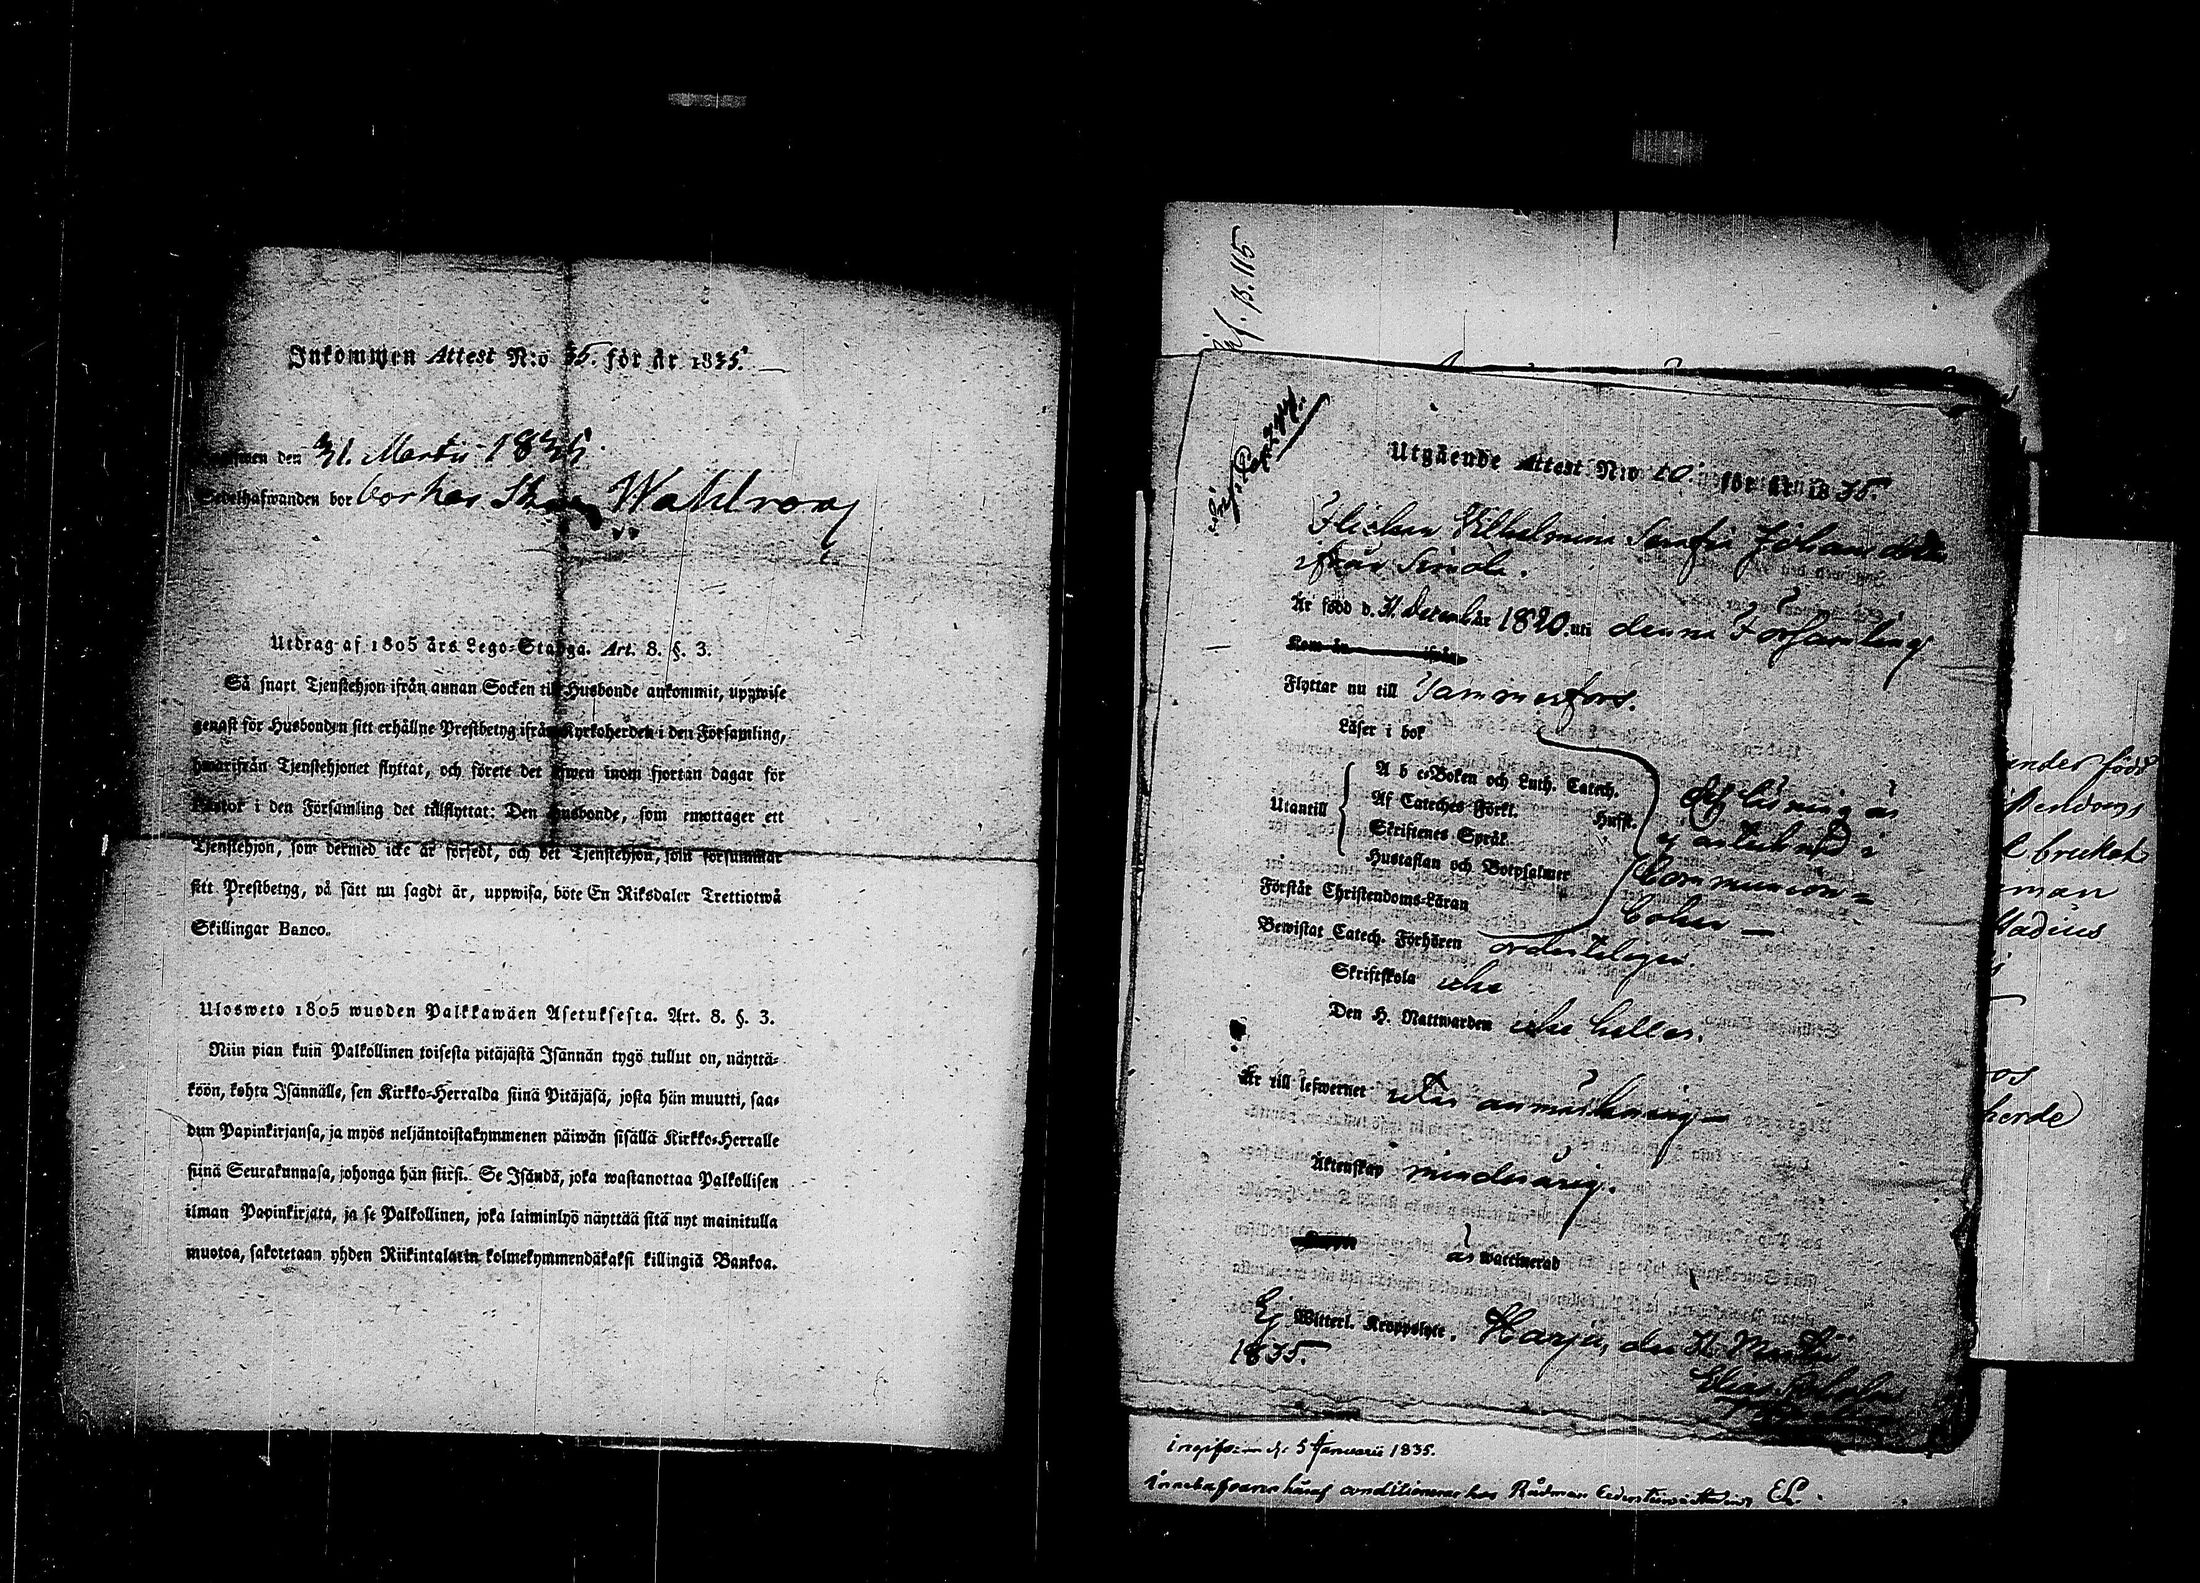 Inkommen Attest N:o 35. för år 1835.
den 31. Martii 1835.
Sedelhafwanden bor hos Wahlroos
Utdrag af 1805 års Lego-Stadga. Art. 8. §. 3.
Så snart Tjenstehjon ifrån annan Socken till Husbonde ankommit, uppwise
genast för Husbonden sitt erhållne Prestbetyg ifrån Kyrkoherden i den Församling,
hwarifrån Tjenstehjonet flyttat, och förete det äfwen inom fjorton dagar för
Pastor i den Församling det tillflyttat: Den Husbonde, som emottager ett
Tjenstehjon, som dermed icke är försedt, och det Tjenstehjon, som försummar
sitt Prestbetyg, på sätt nu sagdt är, uppwisa, böte En Riksdaler Trettiotwå
Skillingar Banco.
Ulosweto 1805 wuoden Palkkawäen Asetuksesta. Art. 8. §. 3.
Niin pian kuin Palkollinen toisesta pitäjästä Isännän tygö tullut on, näyttä-
köön, kohta Isännälle, sen Kirkko-Herralda siinä Pitäjäsä, josta hän muutti, saa-
dun Papinkirjansa, ja myös neljäntoistakymmenen päiwän sisällä Kirkko-Herralle
siinä Seurakunnasa, johonga hän siirsi. Se Isändä, joka wastanottaa Palkollisen
ilman Papinkirjata, ja se Palkollinen, joka laiminlyö näyttää sitä nyt mainitulla
muotoa, sakotetaan yhden Riikintalarin kolmekymmendäkaksi killingiä Bankoa.
p. 115
Utgående Attest N:o 20. för år 1835.
Flickan Vilhelmina Johansdotter
ifrån Simola.
Är född d. 31 December 1820. uti denna Församling
Kom år ifrån
Flyttar nu till Tammerfors.
Läser i bok
A b c-Boken och Luth. Catech.
Utantill Af Cateches Förkl. Hufst.
Skriftenes Språk
Hustaflan och Botpsalmer
Förstår Christendoms-Läran
Läsning är
ej antecknad i
Communion-
boken
Bewistat Catech. Förhören ordenteligen.
Skriftskola icke
Den H. Nattwarden icke heller.
Är till lefwernet utan anmärkning
Äktenskap minderårig.
är waccinerad
Ej Witterl. Kroppslyte. Harju, den 31 Martii
1835.
ander född
bruket
man
Stadius
os
herde
ingifven d. 5 Januarii 1835.
conditionerar hos Rådman